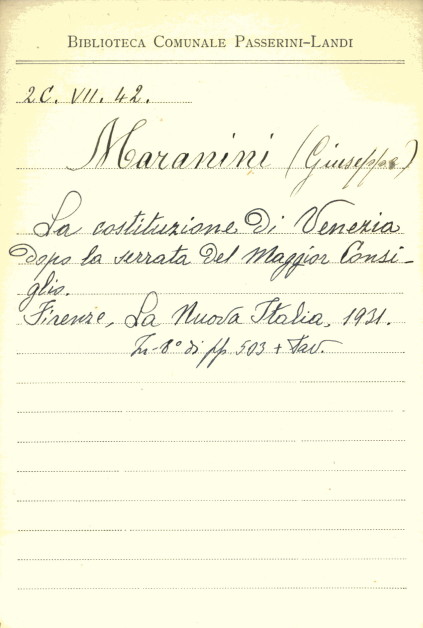 BIBLIOTECA COMUNALE PASSERINI-LANDI
2C. VII. 42.
Maranini (Giuseppe)
La costituzione di Venezia
dopo la serrata del Maggior Consi-
glio.
Firenze, La Nuova Italia, 1931.
In-8° di pp. 503 + tav.